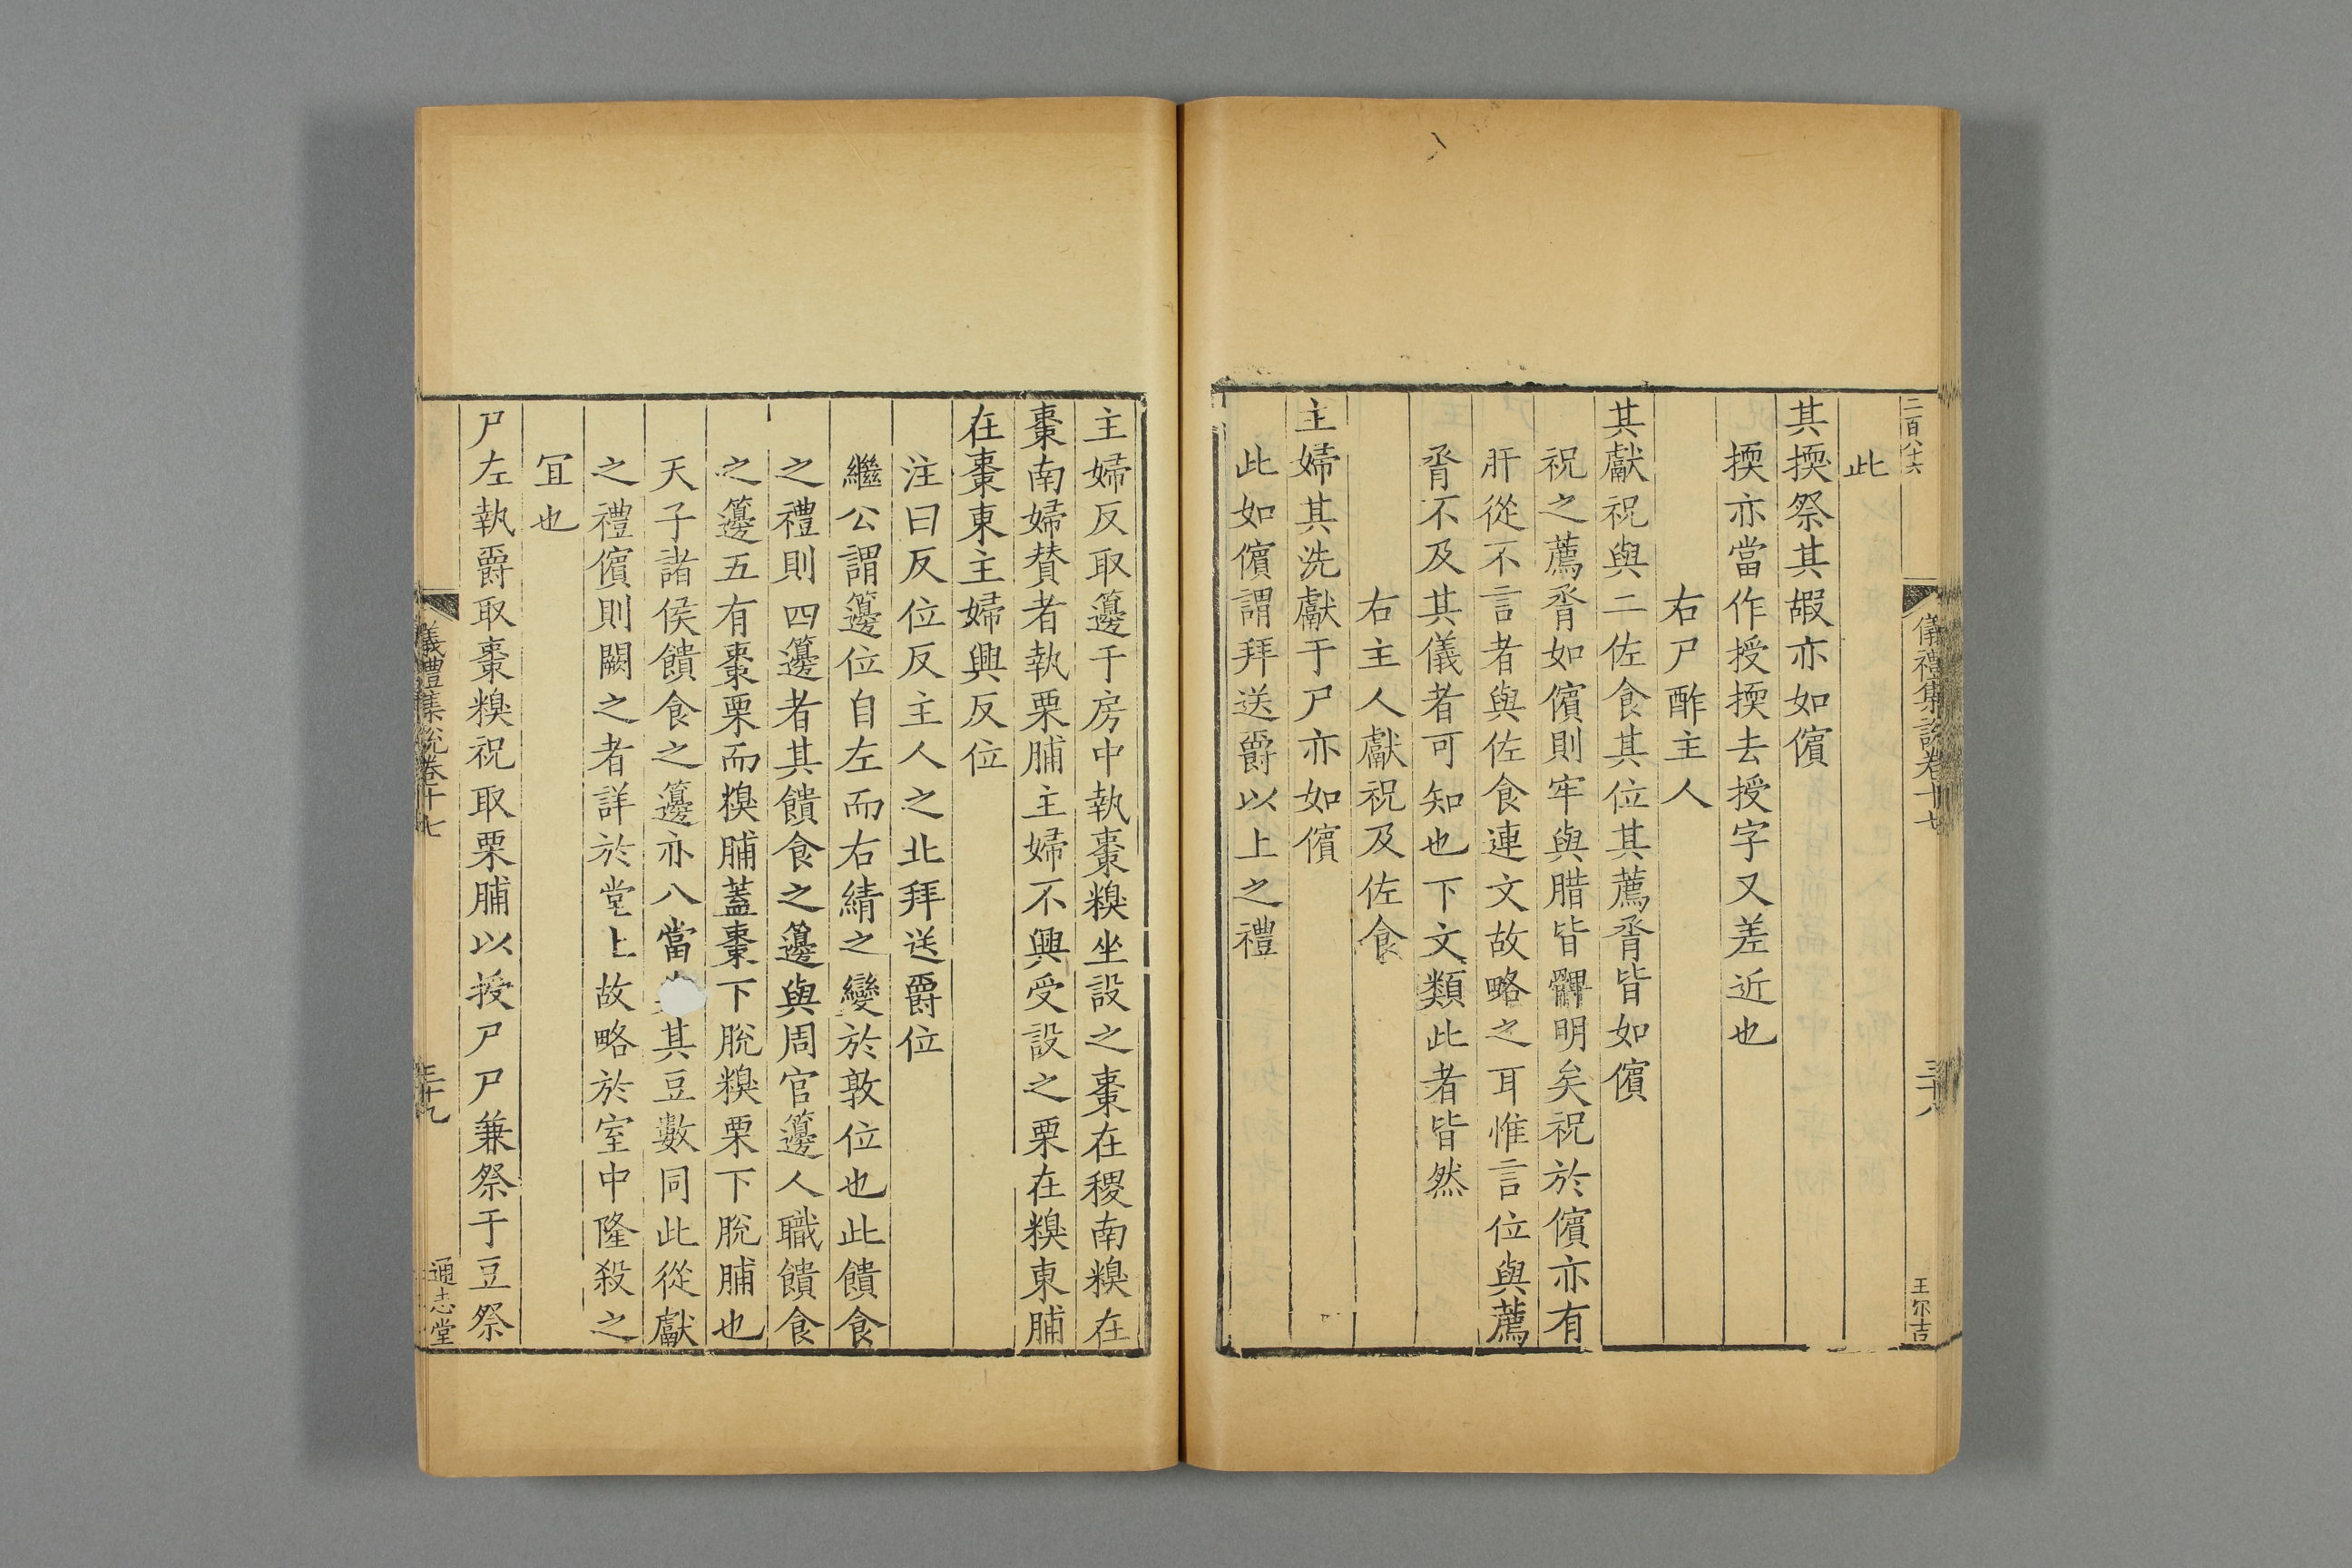 二百八十六
儀禮集說卷十七
三十八
王尔吉
此
其挼祭其嘏亦如儐
挼亦當作授挼去授字又差近也
右尸酢主人
其獻祝與二佐食其位其薦脀皆如儐
祝之薦脀如儐則牢與腊皆髀明矣祝於儐亦有
肝從不言者與佐食連文故略之耳惟言位與薦
脀不及其儀者可知也下文類此者皆然
右主人獻祝及佐食
主婦其洗獻于尸亦如儐
此如儐謂拜送爵以上之禮
主婦反取籩于房中執棗糗坐設之棗在稷南糗在
棗南婦贊者執栗脯主婦不興受設之栗在糗東脯
在棗東主婦興反位
注曰反位反主人之北拜送爵位
繼公謂籩位自左而右綪之變於敦位也此饋食
之禮則四籩者其饋食之籩與周官籩人職饋食
之籩五有棗栗而糗脯蓋棗下脫糗栗下脫脯也
天子諸侯饋食之籩亦八當其豆數同此從獻
之禮儐則闕之者詳於堂上故略於室中隆殺之
宜也
尸左執爵取棗糗祝取栗脯以授尸尸兼祭于豆祭
儀禮集說卷十七
三十九
通志堂